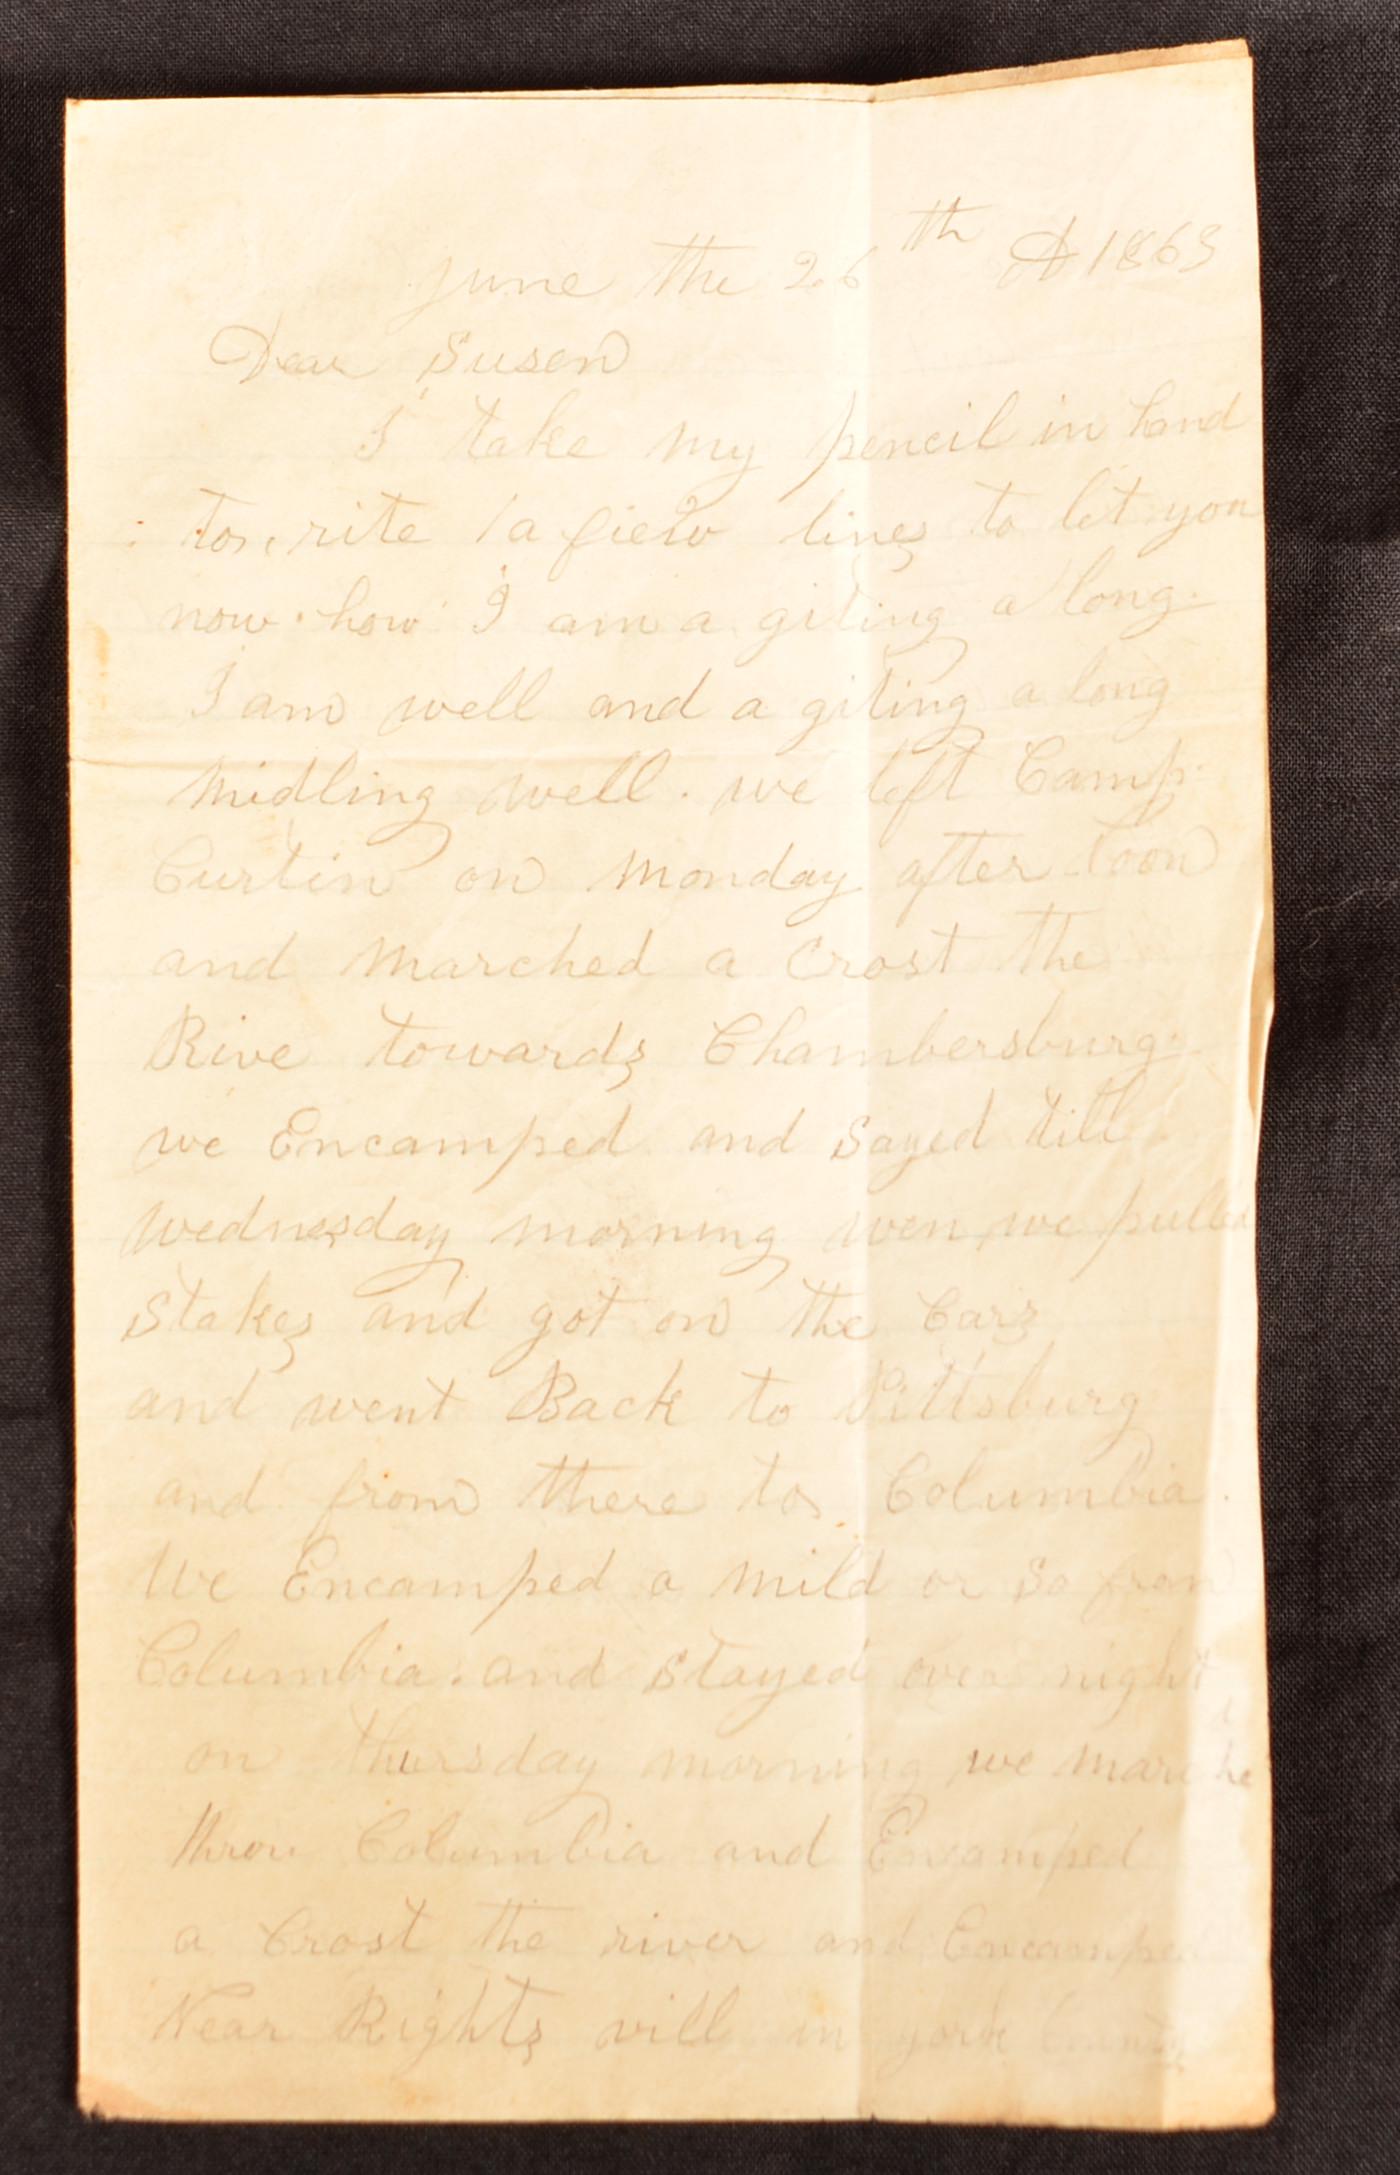 June the 26th A 1863
Dear Susan
I take my pencil in hand
to rite a fiew lines to let you
now how I am a giting a long.
I am well and a giting a long
midling well. we left Camp
Curtin on Monday after toon
and marched a Crost the
Rive towards Chambersburg
we Encamped and Sayed till
wednesday morning wen we pulled
Stakes and got on the Cars
and went Back to Pittsburg
and from there to Columbia.
We Encamped a mild or so from
Columbia. and Stayed over night
on thursday morning we marched
throu Columbia and Encamped
a Crost the river and Encamped
Near Rights vill in york County